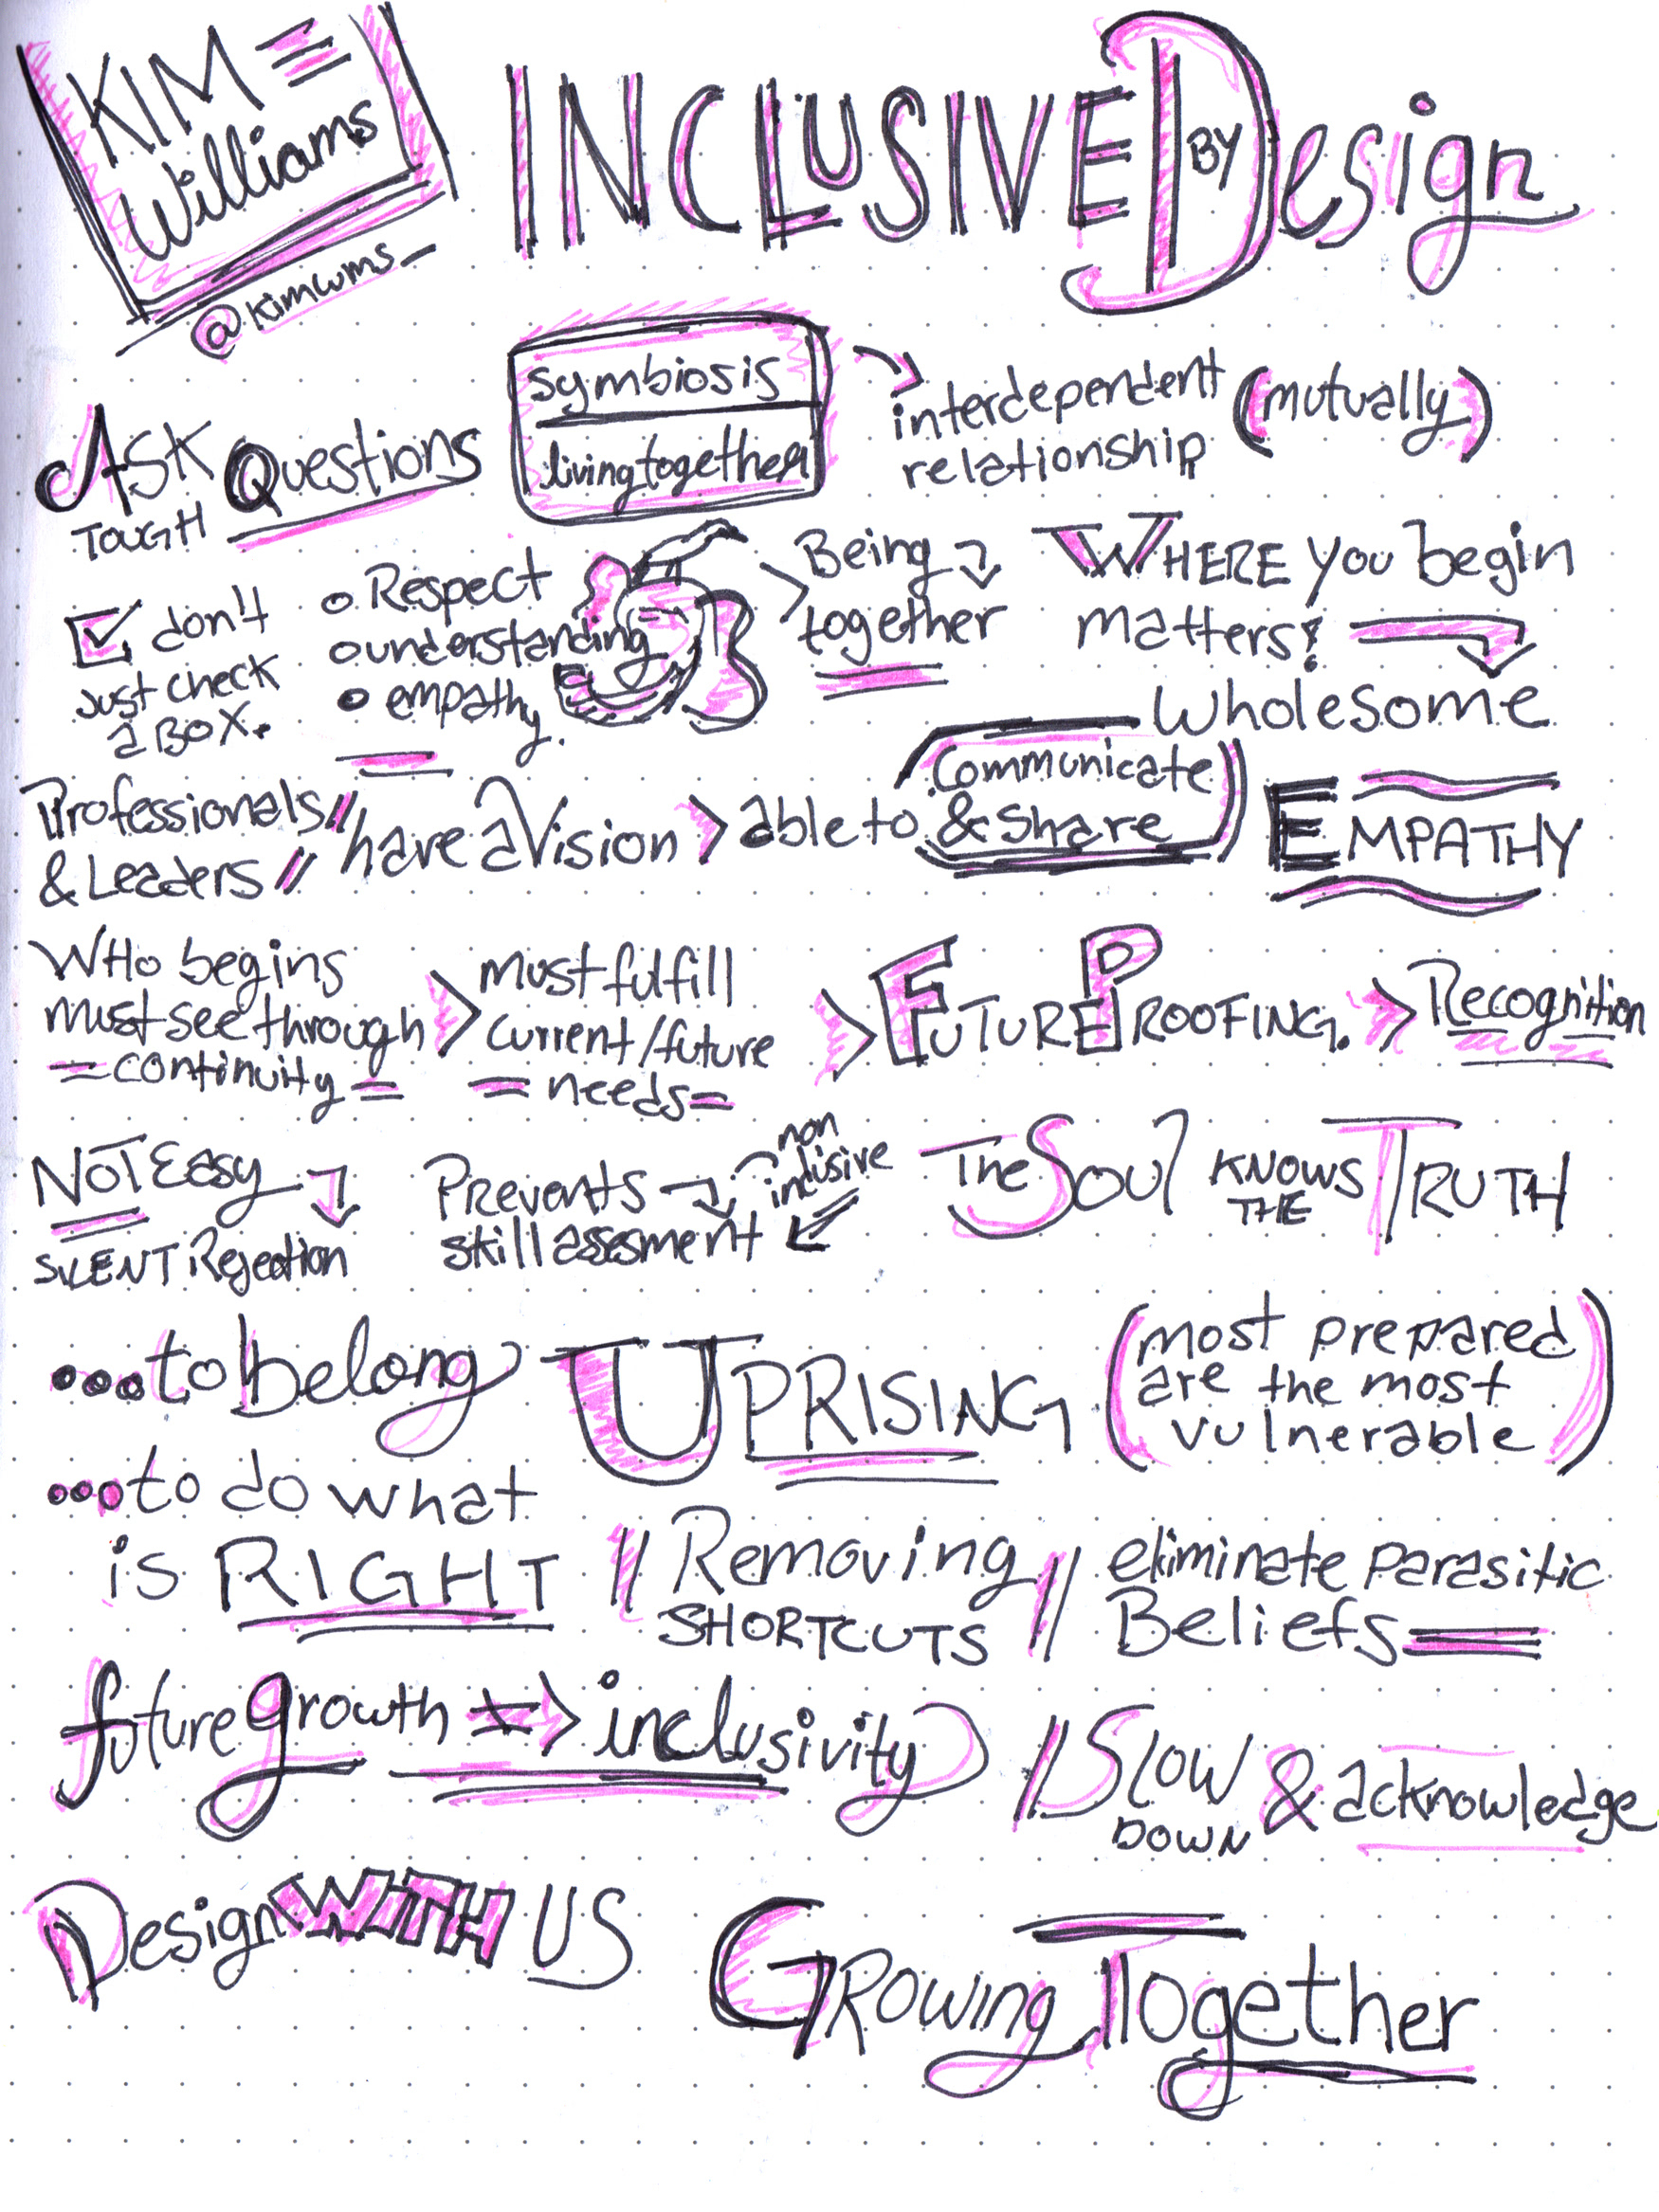 KIM
Williams
@kimwms_
INCLUSIVE BY Design
symbiosis
living together
interdependent (mutually)
relationship
ASK Questions
TOUGH
don't
just check
a BOX.
Respect
understanding
empathy.
Being
together
WHERE you begin
matters!
wholesome
EMPATHY
Professionals
& Leaders
have a Vision > able to
Communicate
& Share
WHO begins
must see through
= continuity =
> must fulfill
current/future
= needs =
> FUTURE PROOFING. >> Recognition
NOT Easy
SILENT Rejection
Prevents
skill assesment
non
inclusive
The Soul KNOWS THE TRUTH
...to belong
UPRISING
(most prepared
are the most
vulnerable)
...to do what
is RIGHT
// Removing
SHORTCUTS //
eliminate parasitic
Beliefs
future growth => inclusivity
// Slow
DOWN
& acknowledge
Design WITH US
Growing Together